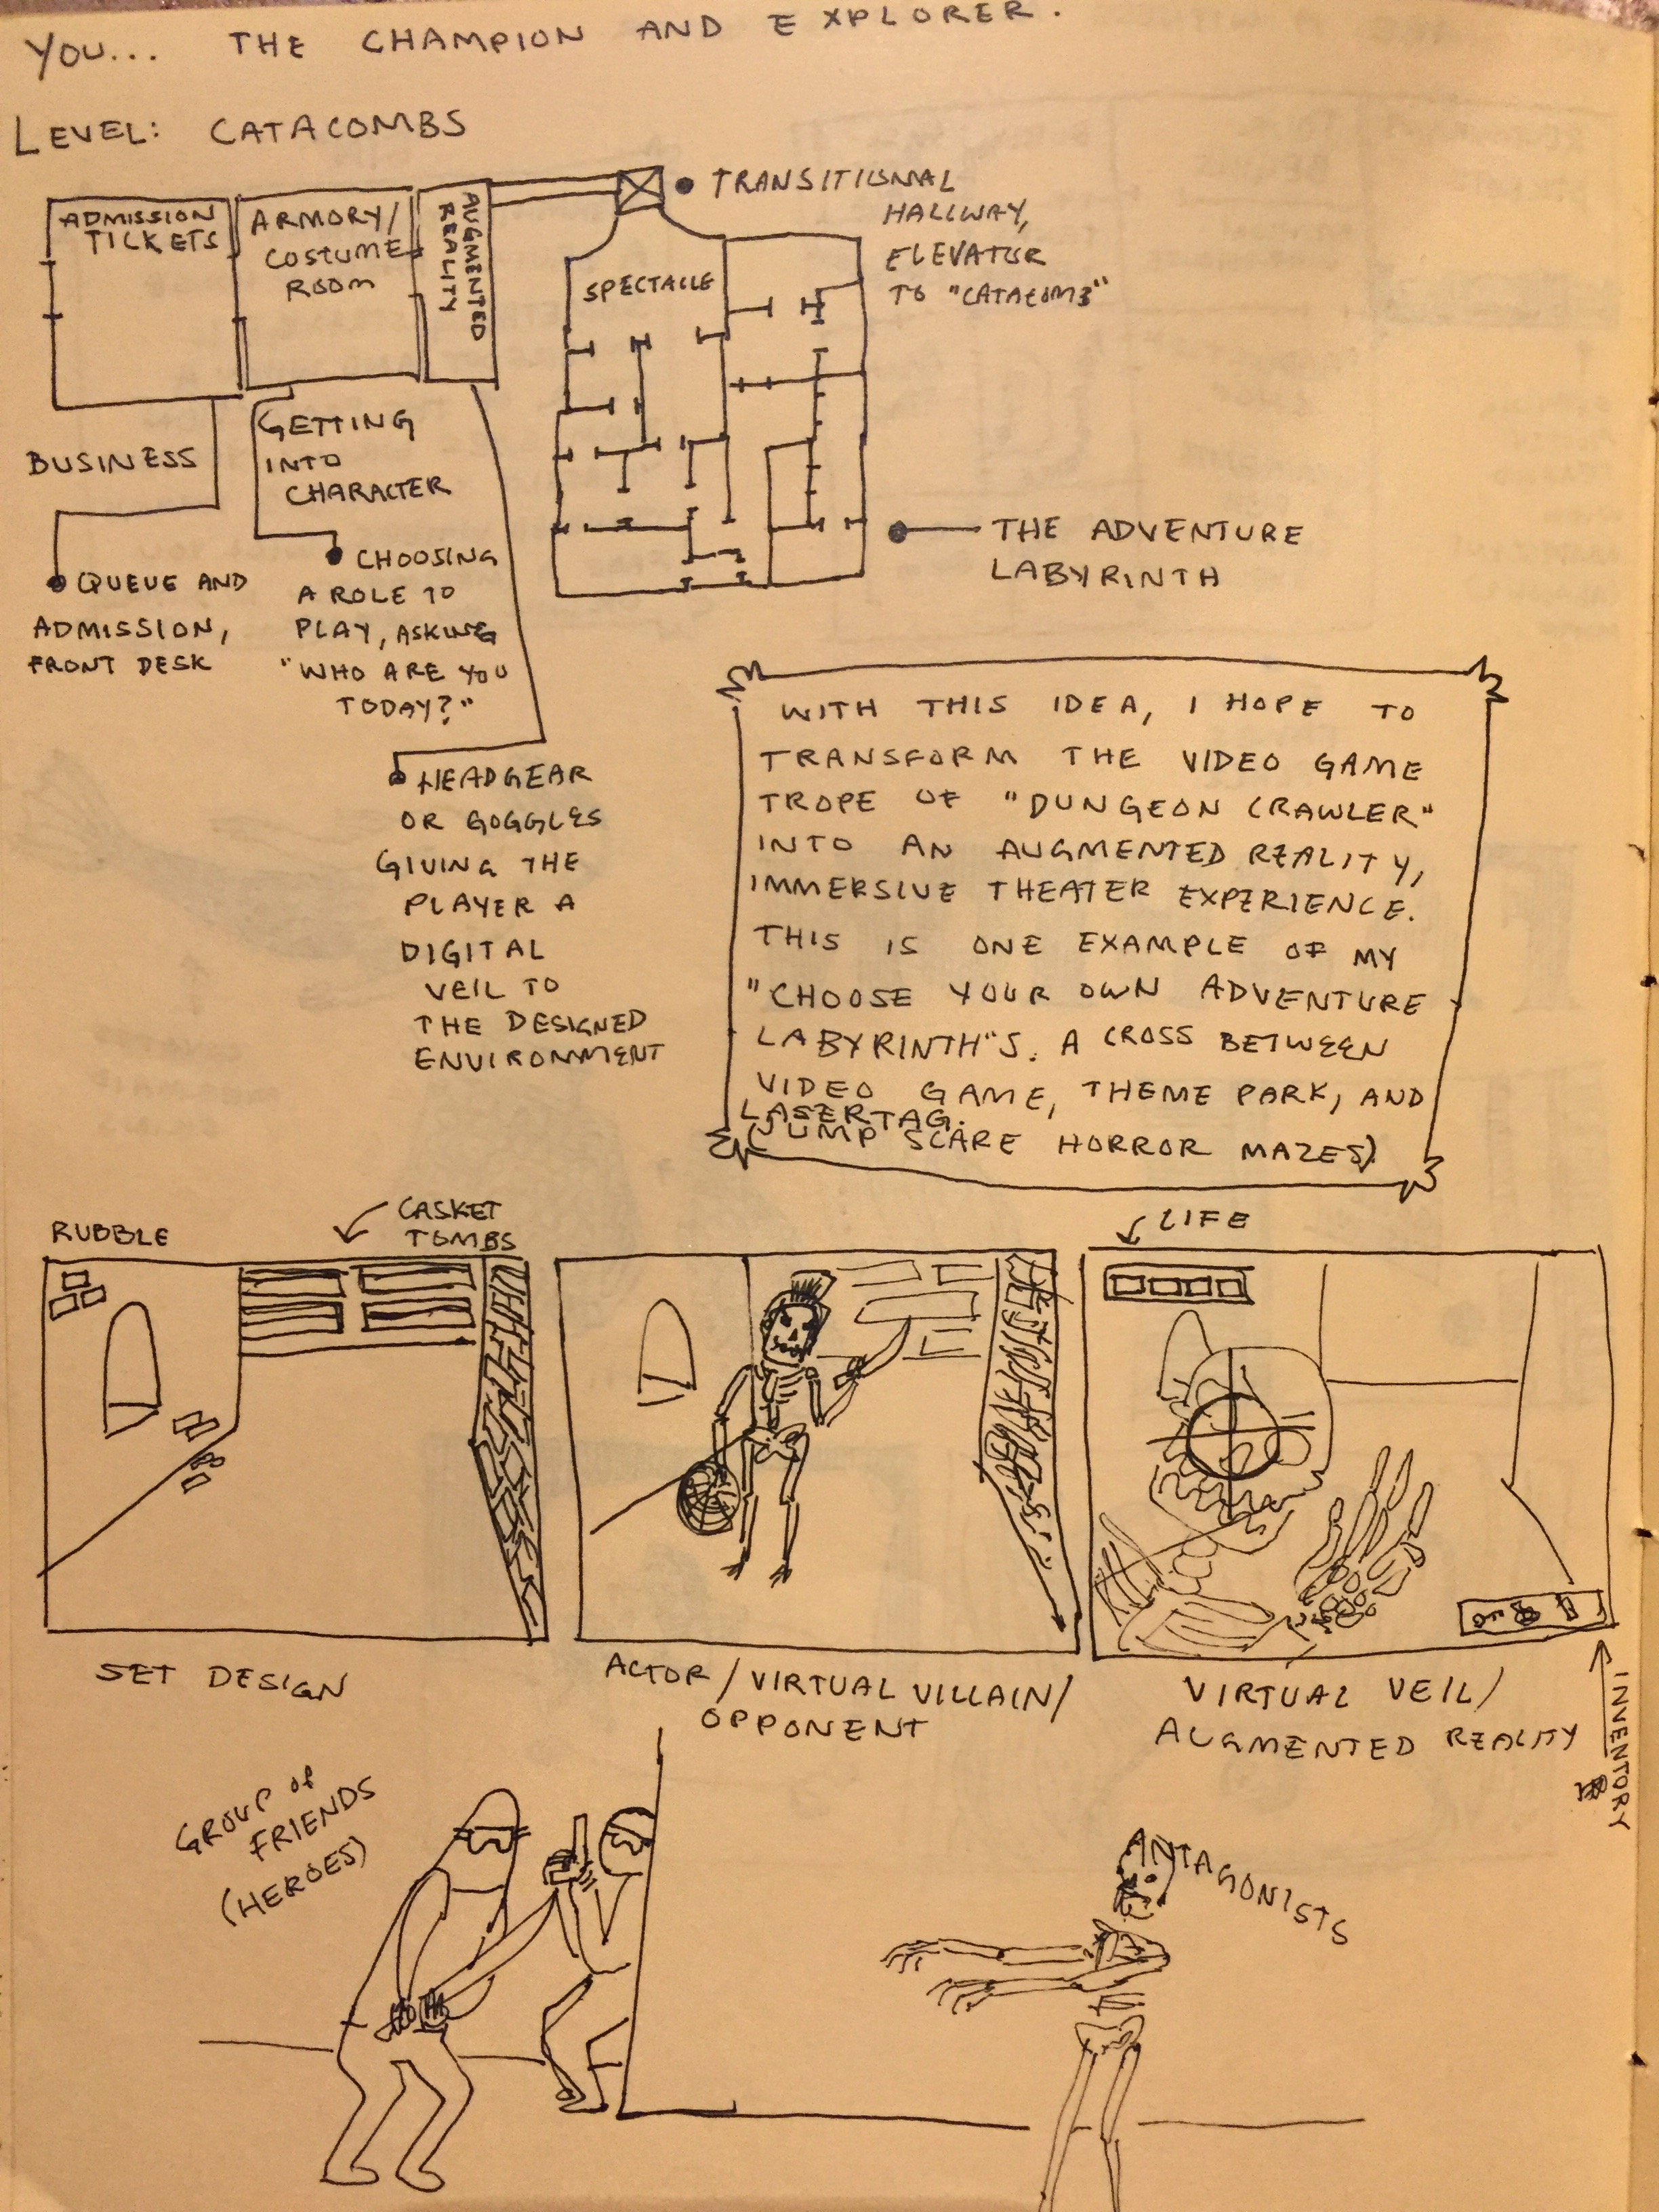 YOU... THE CHAMPION AND EXPLORER.
LEVEL: CATACOMBS
ADMISSION
TICKETS
ARMORY/
COSTUME
ROOM
AUGMENTED
REALITY
TRANSITIONAL
HALLWAY,
ELEVATOR
TO "CATACOMB"
SPECTACLE
BUSINESS
QUEUE AND
ADMISSION,
FRONT DESK
GETTING
INTO
CHARACTER
CHOOSING
A ROLE TO
PLAY, ASKING
"WHO ARE YOU
TODAY?"
THE ADVENTURE
LABYRINTH
HEADGEAR
OR GOGGLES
GIVING THE
PLAYER A
DIGITAL
VEIL TO
THE DESIGNED
ENVIRONMENT
WITH THIS IDEA, I HOPE TO
TRANSFORM THE VIDEO GAME
TROPE OF "DUNGEON CRAWLER"
INTO AN AUGMENTED REALITY,
IMMERSIVE THEATER EXPERIENCE.
THIS IS ONE EXAMPLE OF MY
"CHOOSE YOUR OWN ADVENTURE
LABYRINTH"S. A CROSS BETWEEN
VIDEO GAME, THEME PARK, AND
LASERTAG.
(JUMP SCARE HORROR MAZES)
RUBBLE
CASKET
TOMBS
LIFE
SET DESIGN
ACTOR/VIRTUAL VILLAIN/
OPPONENT
VIRTUAL VEIL/
AUGMENTED REALITY
INVENTORY
GROUP of
FRIENDS
(HEROES)
ANTAGONISTS